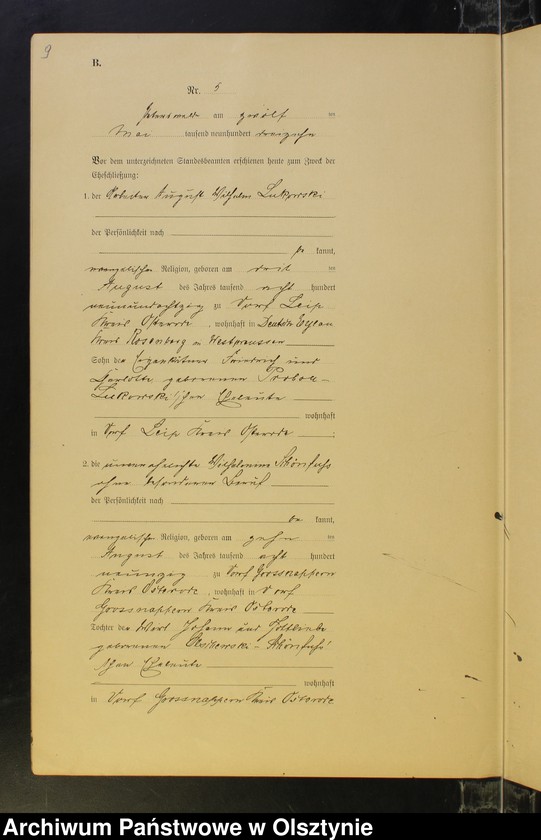 9
B.
Nr. 5
am zwölf ten
Mai tausend neunhundert dreizehn
Vor dem unterzeichneten Standesbeamten erschienen heute zum Zweck der
Eheschließung:
1. der Arbeiter August Wilhelm Lukowski
der Persönlichkeit nach
be kannt,
evangelischer Religion, geboren am dritten
August des Jahres tausend acht hundert
neunundachtzig zu Dorf Leip
Kreis Osterode, wohnhaft in Deutsch Eylau
Kreis Rosenberg in Westpreussen
Sohn des Friedrich und
geborenen
Lukowski'schen Eheleute
wohnhaft
in Dorf Leip Kreis Osterode
2. die unverehelichte Wilhelmine Schönfuhs
ohne besonderen Beruf
der Persönlichkeit nach
be kannt,
evangelischer Religion, geboren am zehn ten
August des Jahres tausend acht hundert
neunzig zu Dorf Grossnappern
Kreis Osterode, wohnhaft in Dorf
Grossnappern Kreis Osterode
Tochter des Wirt Johann und Gottliebe
geborenen Schönfuhs'
schen Eheleute
wohnhaft
in Dorf Grossnappern Kreis Osterode
Archiwum Państwowe w Olsztynie